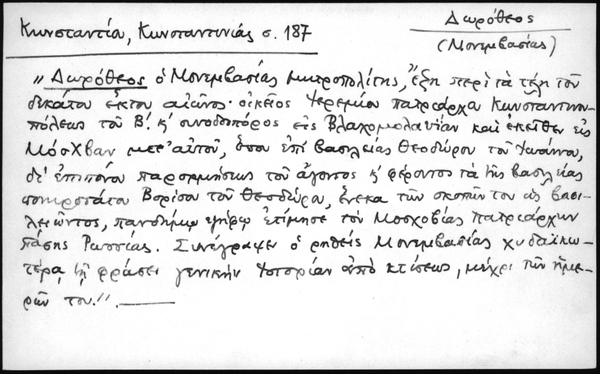 Δωρόθεος
(Μονεμβασίας)
Κωνσταντία, Κωνσταντινιάς σ. 187
"Δωρόθεος ὁ Μονεμβασίας μητροπολίτης, ἔζη περὶ τὰ τέλη τοῦ
δεκάτου ἕκτου αἰῶνος· οἰκεῖος Ἱερεμίου πατριάρχου Κωνσταντινου-
πόλεως τοῦ Β΄. κ̓ συνοδοιπόρος εἰς Βλαχομολδαυΐαν καὶ ἐκεῖθεν εἰς
Μόσχβαν μετ' αὐτοῦ, ὅπου ἐπὶ βασιλείας Θεοδώρου τοῦ Ἰωάννου,
δι' ἐπιπόνου παρορμήσεως τοῦ ἄγοντος κ̓ φέροντος τὰ τῆς βασιλείας
Βορίσου τοῦ Θεοδώρου, ἕνεκα τῶν σκοπῶν του ὡς βασι-
λειῶντος, πανδήμῳ ψήφῳ ἐτίμησε τὸν Μοσχοβίας Πατριάρχην
πάσης Ῥωσσίας. Συνέγραψεν ὁ ῥηθεὶς Μονεμβασίας χυδαϊκω-
τέρᾳ τῇ φράσει γενικὴν Ἱστορίαν ἀπὸ κτίσεως, μέχρι τῶν ἡμε-
ρῶν του".